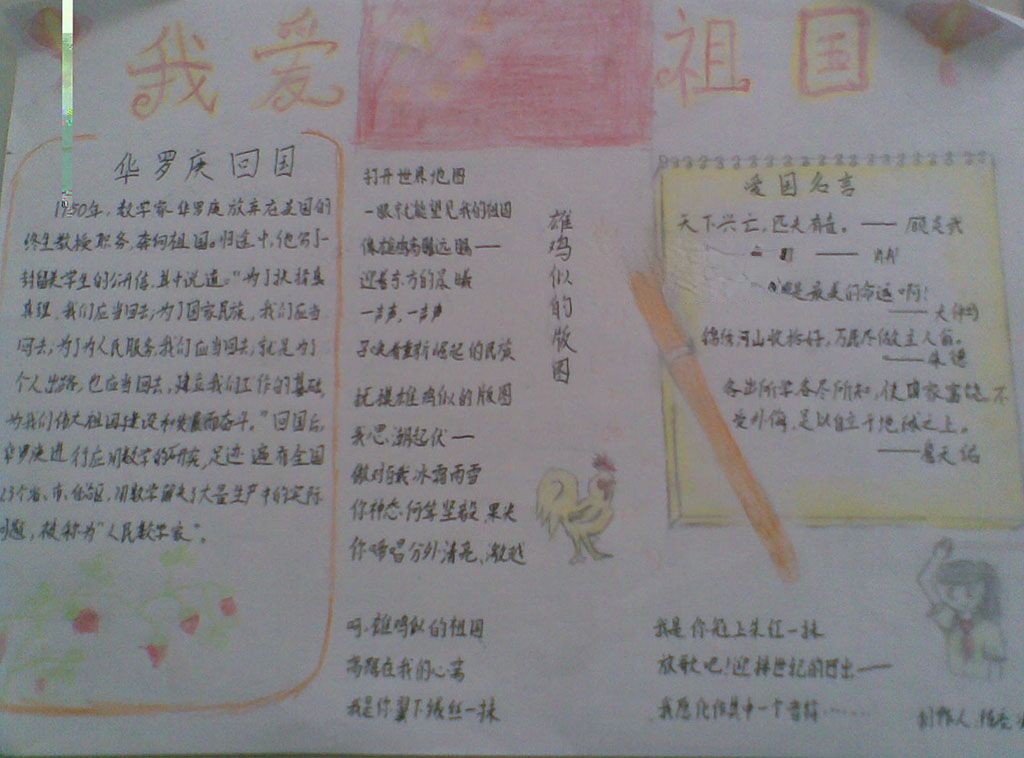 我爱祖国
华罗庚回国
1950年，数学家华罗庚放弃在美国的
终生教授职务，奔向祖国。归途中，他写了一
封留美学生的公开信，其中说道："为了抉择真
真理，我们应当回去；为了国家民族，我们应当
回去；为了为人民服务，我们应当回去；就是为了
个人出路，也应当回去，建立我们工作的基础，
为我们伟大祖国的建设和发展而奋斗。"回国后，
华罗庚进行应用数学的研究，足迹遍布全国
23个省、市、自治区，用数学解决了大量生产中的实际
问题，被称为"人民数学家"。
雄鸡似的版图
打开世界地图
一眼就能望见我的祖国
像雄鸡高瞻远瞩——
迎着东方的晨曦
一声声，一声声
呼唤着重新崛起的民族
抚摸雄鸡似的版图
我思潮起伏—
傲对
冰霜雨雪
你神态何等坚毅、果决
你啼唱分外清亮、激越
呵，雄鸡似的祖国
高踞在我的心窝
我是你翼下绒丝一抹
我是你冠上朱红一抹
放歌吧！迎接世纪的日出——
我愿化作其中一个音符……
爱国名言
天下兴亡，匹夫有责。——顾炎武
是最美的命运啊！
——大仲马
锦绣河山收拾好，万民尽做主人翁。
——朱德
各出所学，各尽所知，使国家富强不
受外侮，足以自立于地球之上。
——詹天佑
制作人